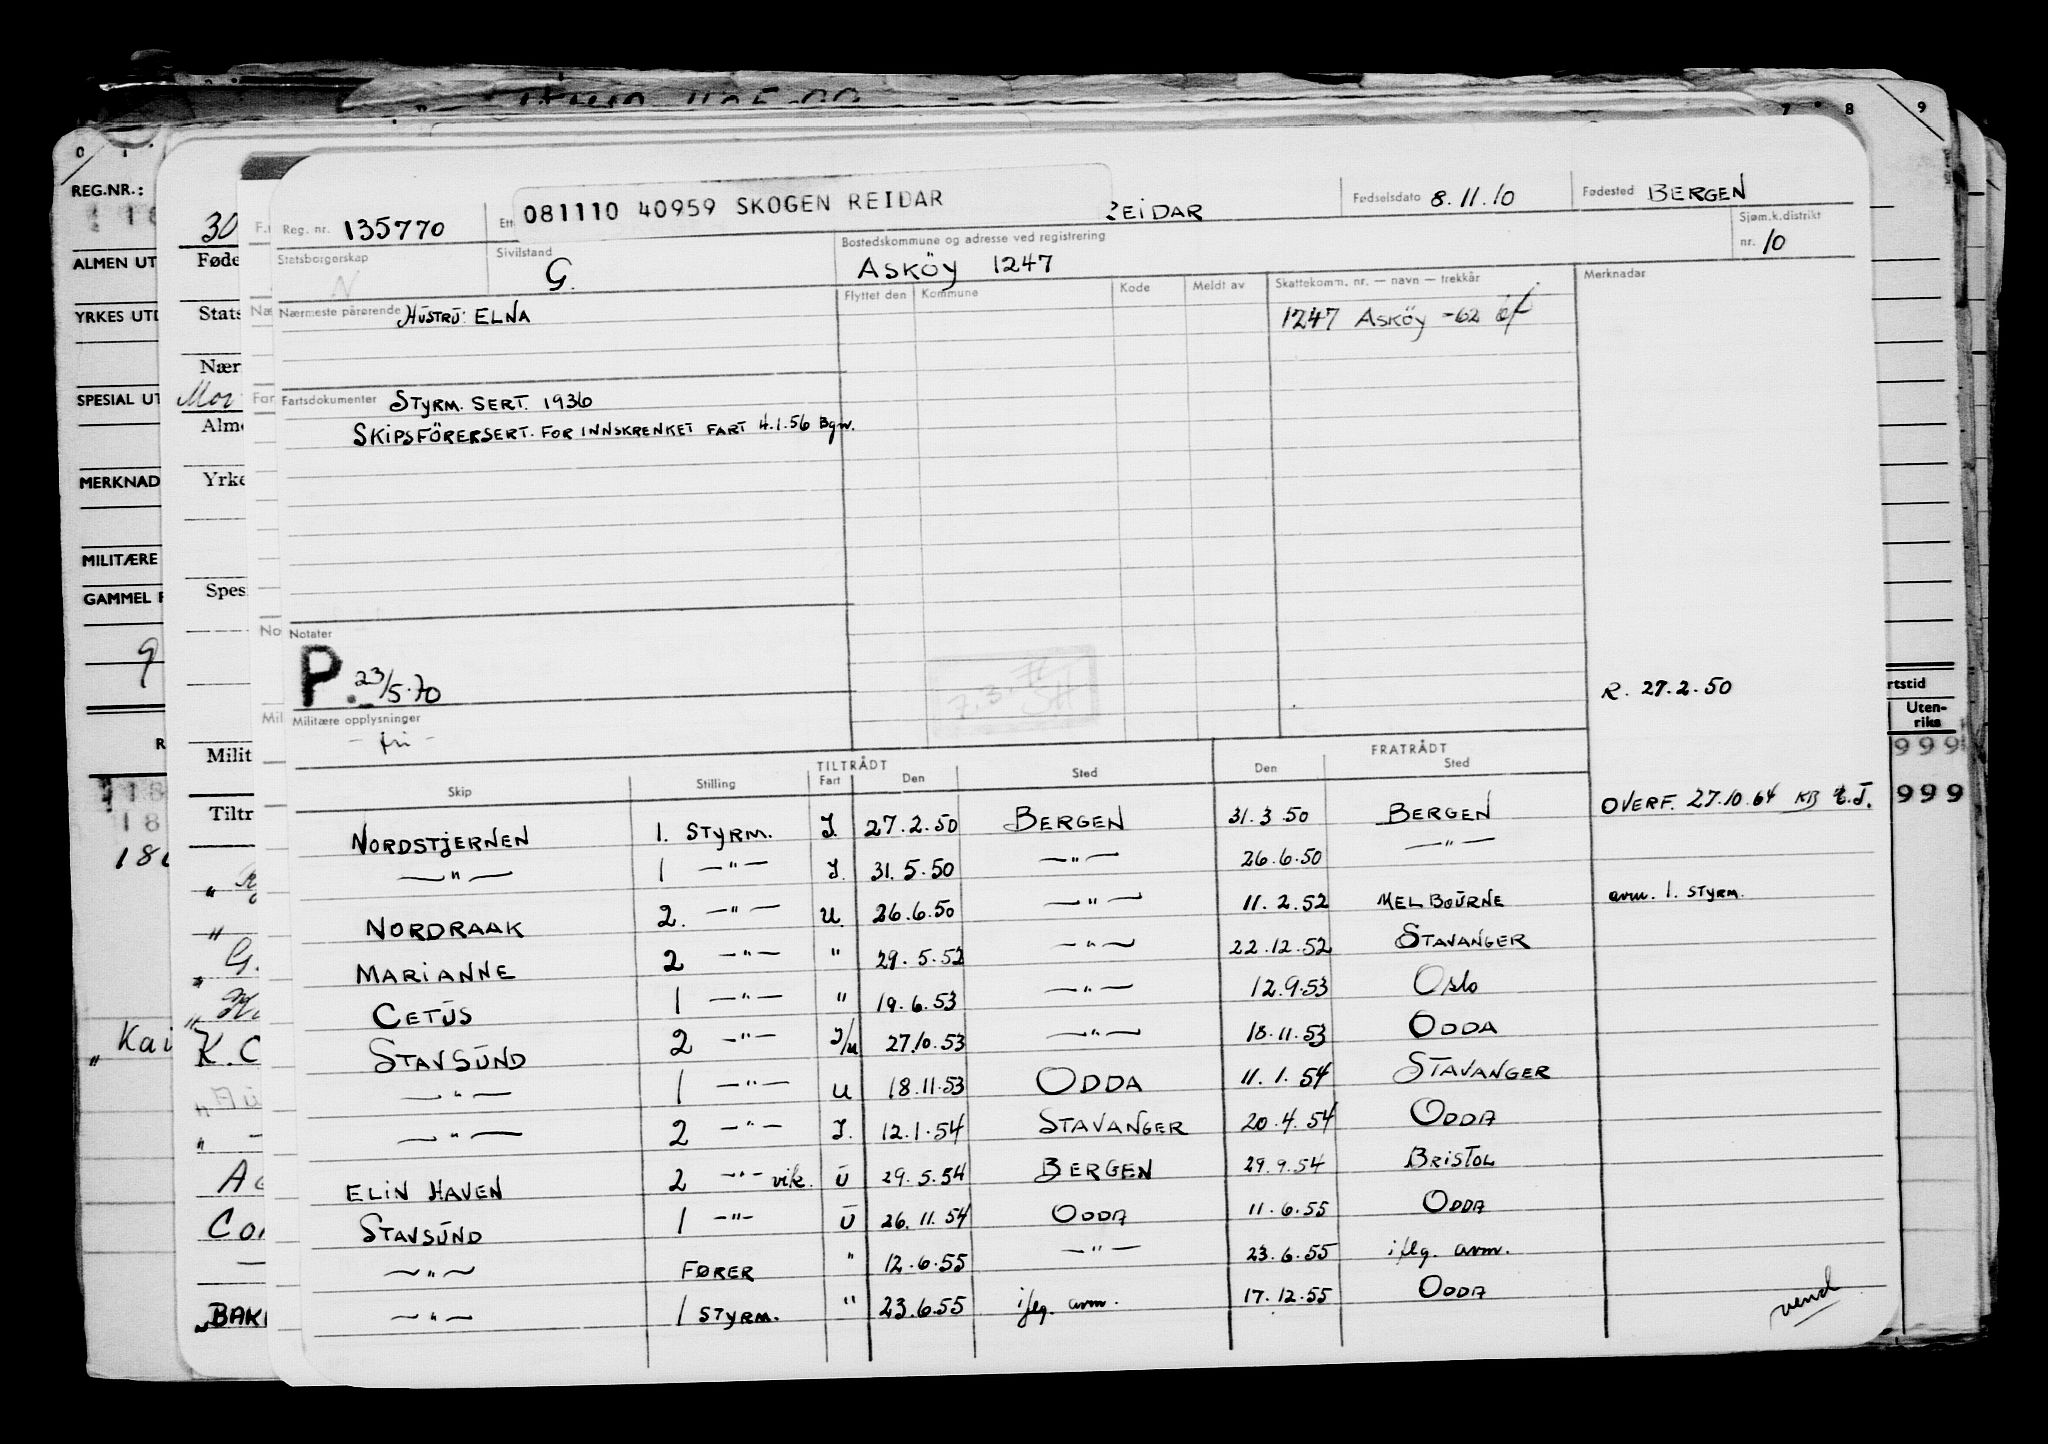 081110 40959 SKOGEN REIDAR
Reg. nr. 135770 EIDAR Fødselsdato 8.11.10 Fødested BERGEN
Statsborgerskap N Sivilstand G. Bostedskommune og adresse ved registrering ASKÖY 1247 Sjøm.k.distrikt nr. 10
Nærmeste pårørende HUSTRU: ELNA
Flyttet den Kommune Kode Meldt av Skattekomm. nr. — navn — trekkår Merknader
1247 ASKÖY -62
Fartsdokumenter STYRM. SERT. 1936
SKIPSFÖRERSERT. FOR INNSKRENKET FART 4.1.56 Bgn.
Notater
P. 23/5.70
R. 27.2.50
Militære opplysninger
- fri -
TILTRÅDT FRATRÅDT
Skip Stilling Fart Den Sted Den Sted
NORDSTJERNEN 1. STYRM. I. 27.2.50 BERGEN 31.3.50 BERGEN OVERF. 27.10.64 KB E.T.
—"— 1 —"— I. 31.5.50 —"— 26.6.50 —"—
NORDRAAK 2. —"— U. 26.6.50 —"— 11.2.52 MELBOURNE avm. 1. STYRM.
MARIANNE 2 —"— " 29.5.52 —"— 22.12.52 STAVANGER
CETUS 1 —"— " 19.6.53 —"— 12.9.53 Oslo
STAVSUND 2 —"— I/u 27.10.53 —"— 18.11.53 ODDA
—"— 1 —"— U 18.11.53 ODDA 11.1.54 STAVANGER
—"— 2 —"— I. 12.1.54 STAVANGER 20.4.54 ODDA
ELIN HAVEN 2 —"— vik. U 29.5.54 BERGEN 29.9.54 BRISTOL
STAVSUND 1 —"— U 26.11.54 ODDA 11.6.55 ODDA
—"— FØRER " 12.6.55 —"— 23.6.55 iflg. avm.
—"— 1 STYRM. " 23.6.55 iflg. avm. 17.12.55 ODDA
vend
0 1
REG.NR.:
ALMEN UT
YRKES UTD
SPESIAL UT
MERKNAD
MILITÆRE
GAMMEL
30
Føde
Stats
Nær
Mor
Alm
Yrke
Spes
Milit
Tiltr
"Kai
K.C
BAK
7 8 9
rtstid
Uten-
riks
999
999